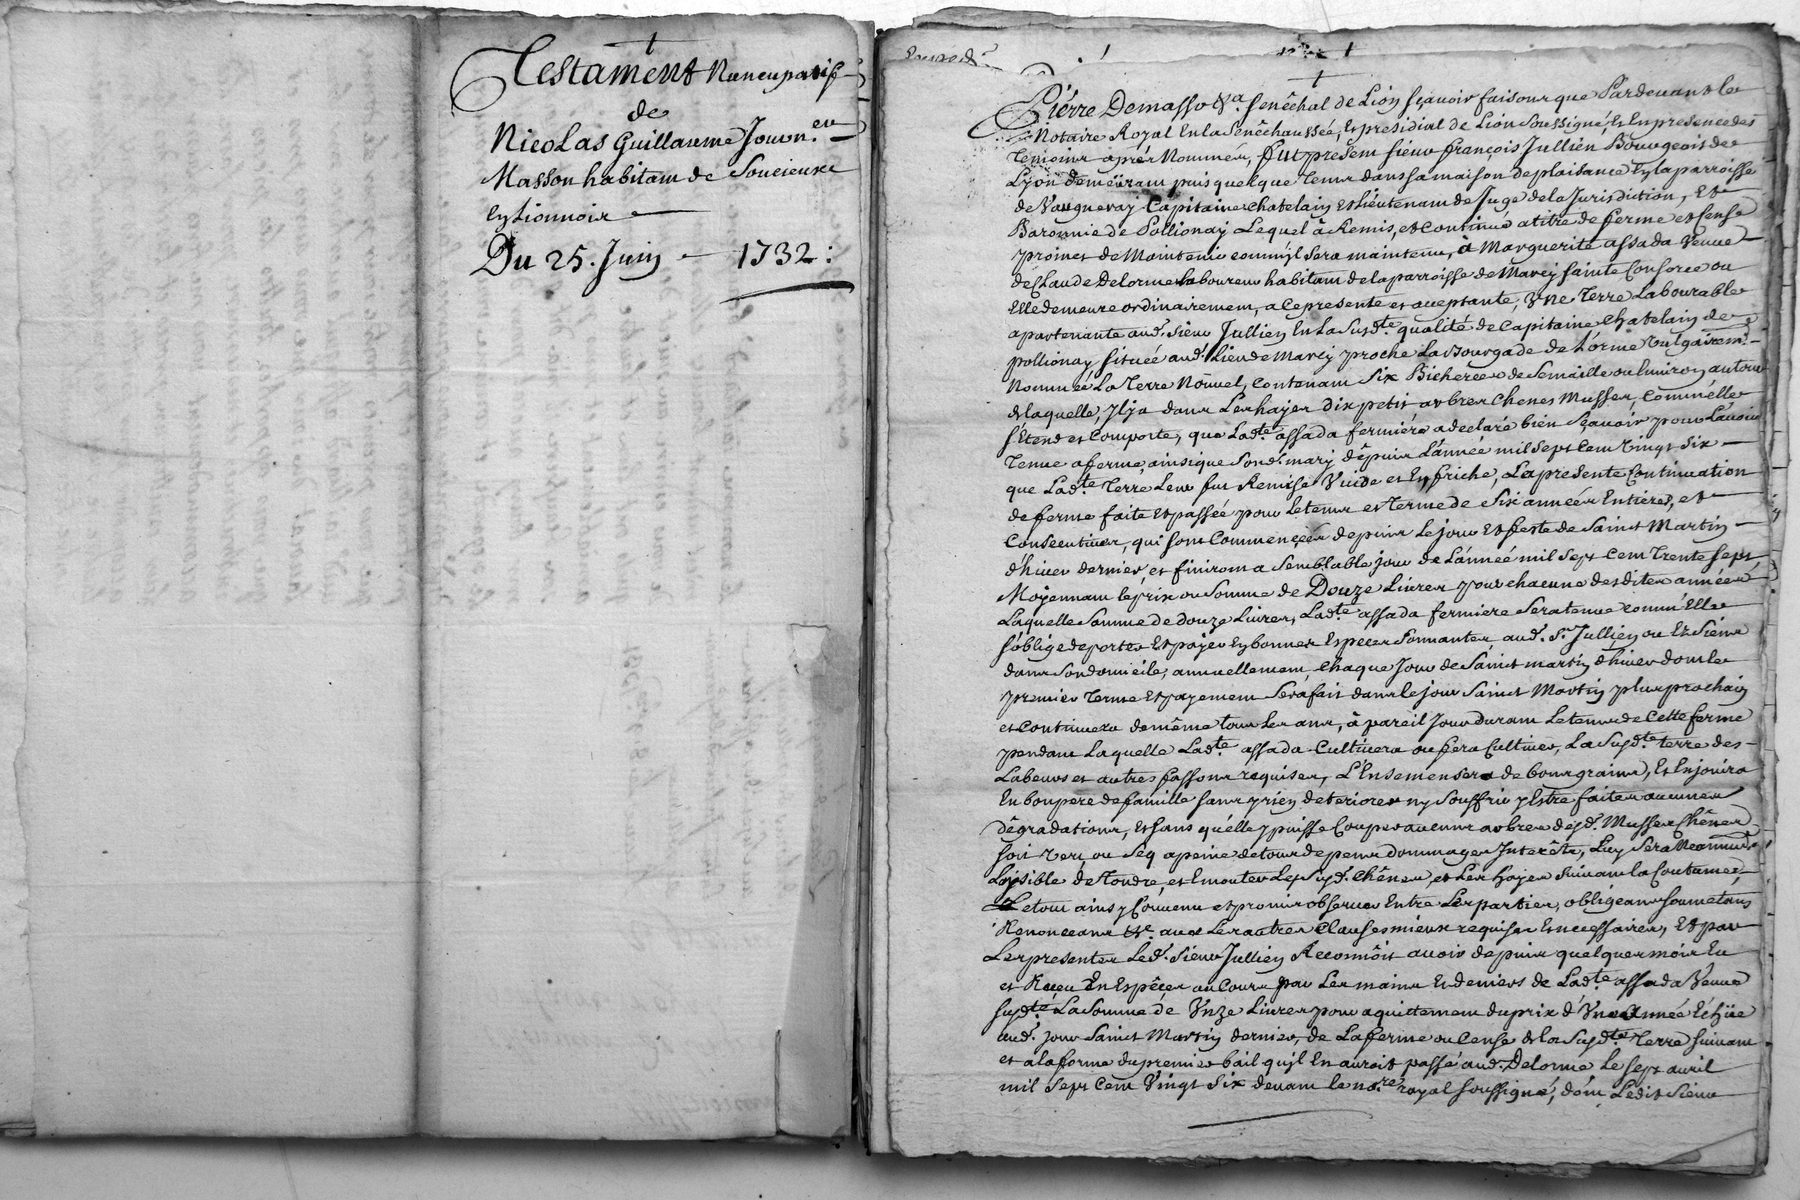 Testament Nuncupatif
de
Nicolas Guillaume Jouvn.eu
Masson habitant de Soucieux
En Lionnois
Du 25. Juin 1732:
Pierre Demasso &a. Senêchal de Lion sçavoir faisons que Pardevant le
Notaire Royal En la Senêchaussée, et presidial de Lion Soussigné, et En presence des
temoins aprés Nommés, fut present sieur françois Jullien Bourgeois de
Lyon demeürant puis quelque tems dans sa maison de plaisance En la parroisse
de Vaugneray Capitaine chatelain et Lieutenant de Juge de la Jurisdiction, Et
Baronnie de Pollionay Lequel à Remis, et continué a titre de ferme et Cense
promet de Maintenir comm'jl sera maintenu, à Marguerite assada Veuve
de Claude Delorme Laboureur habitant de la parroisse de Marcy sainte Consorce ou
Elle demeure ordinairement, a ce presente et acceptante, Vne Terre Labourable
apartenante aud. sieur Jullien En La Susd.te qualité de Capitaine Chatelain de
pollionay, située aud. Lieu de Marcy proche La Bourgade de L'orme Vulgairem.t
Nommée La Terre Nouvel, Contenant Six Bicherées de Semaille ou Environ, autour
de laquelle, Jl y a dans Les hayes dix petits arbres Chenes Musses, Comm'elle
s'Etend et Comporte, que Lad.te assada fermiére a declaré bien Sçavoir pour L'avoir
Tenue a ferme, ainsi que Sond. mary dêpuis L'année mil Sept Cent Vingt Six
que Lad.te Terre Leur fut Remise Vuide et En friche, La presente Continuation
de ferme faite Et passée pour Le tems et Terme de Six années Entieres, et
Consecutives, qui sont Commencées depuis Le jour Et feste de Saint Martin
d'hiver dernier, et finiront a Semblable jour de L'année mil Sept Cent Trente Sept
Moyennant le prix ou Somme de Douze Livres pour chacune desdites années
Laquelle Somme de douze Livres, Lad.te assada fermiere Sera tenue comm'Elle
s'oblige de porter Et päyer En bonnes Especes Sonnantes, aud. S.r Jullien ou Es Siens
dans Son domicile, annuellement, chaque Jour de Saint martin d'hiver dont le
premier Terme Et payement Sera fait dans le jour Saint Martin plus prochain
et Continuera de même tous Les ans, à pareil Jour durant Le tems de Cette ferme
pendant Laquelle Lad.te assada Cultivera ou fera Cultiver, La Susd.te terre des
Labeurs et autres fassons requises, L'Ensemensera de bons grains, Et En jouira
En bon pere de famille sans y rien deteriorer ny Souffrir y Estre faites aucunes
dêgradations, Et sans qu'elle y puisse Couper aucuns arbres desd. Musses Chênes
soit Vert, ou Sêq a peine de tous depens dommages Interêts, Luy Sera Neanmoins
Loisible de Tondre, et Emouter Les Susd. Chênes, et Les hayes Suivant la Coutume,
Le tout ainsy Convenu et promis observer Entre Les parties, obligeans soumetans
Renonceans &c. avec Les autres Clauses mieux requises Et necessaires, Et par
Les presentes Led. Sieur Jullien Reconnôit avoir depuis quelques mois Eu
et Receu En Espêces au Cours par Les mains Et deniers de Lad.te assada Veuve
susd.te La Somme de Vnze Livres pour aquittement du prix d'Vne Année Echüe
aud. jour Saint Martin dernier, de La ferme ou Cense de la Susd.te Terre suivant
et a la forme du premier bail qu'jl En auroit passé aud. Delorme Le Sept avril
mil Sept Cent Vingt Six devant le no.re royal soussigné, dont Ledit Sieur